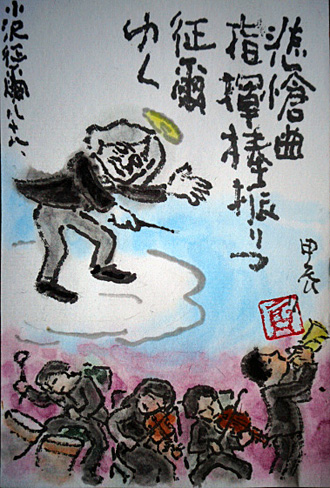 悲愴曲
指揮棒振りつ
征爾
ゆく
小沢征爾八十八、
甲辰